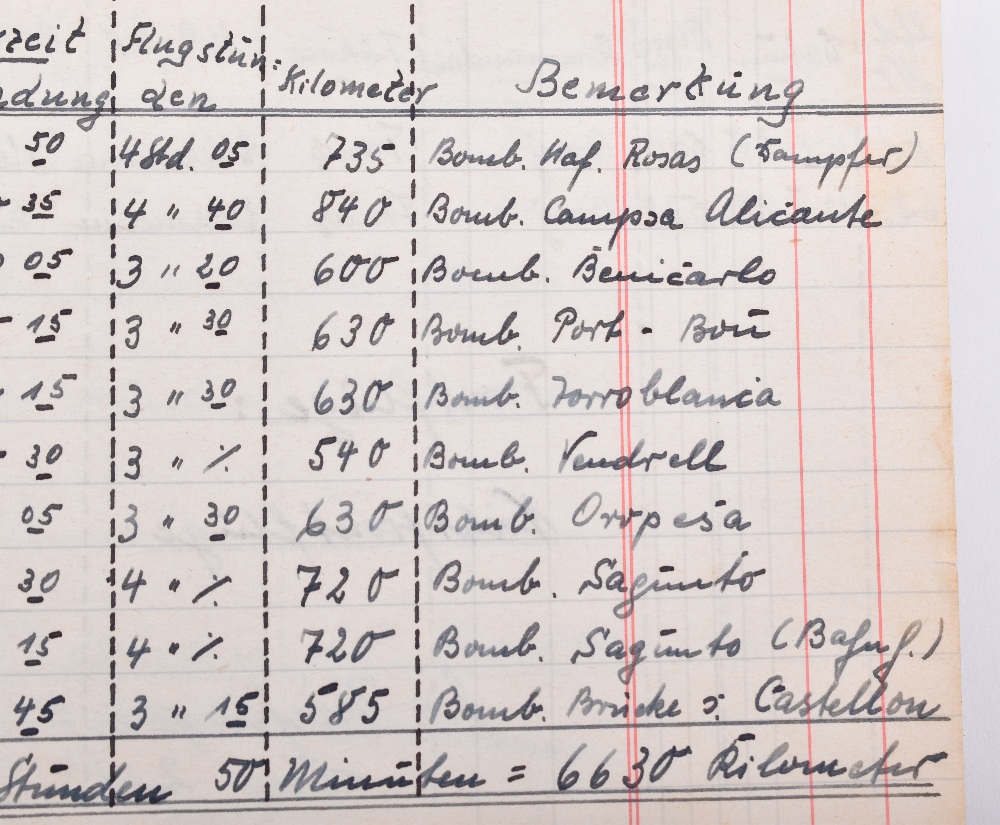 zeit Flugstun-
dung den Kilometer Bemerkung
50 4 Std. 05 735 Bomb. Haf. Rosas (Dampfer)
35 4 " 40 840 Bomb. Campsa Alicante
05 3 " 20 600 Bomb. Benicarlo
15 3 " 30 630 Bomb. Port - Bou
15 3 " 30 630 Bomb. Torroblanca
30 3 " % 540 Bomb. Vendrell
05 3 " 30 630 Bomb. Oropesa
30 4 " % 720 Bomb. Sagunto
15 4 " % 720 Bomb. Sagunto (Bahnh.)
45 3 " 15 585 Bomb. Brücke s. Castellon
Stunden 50 Minuten = 6630 Kilometer